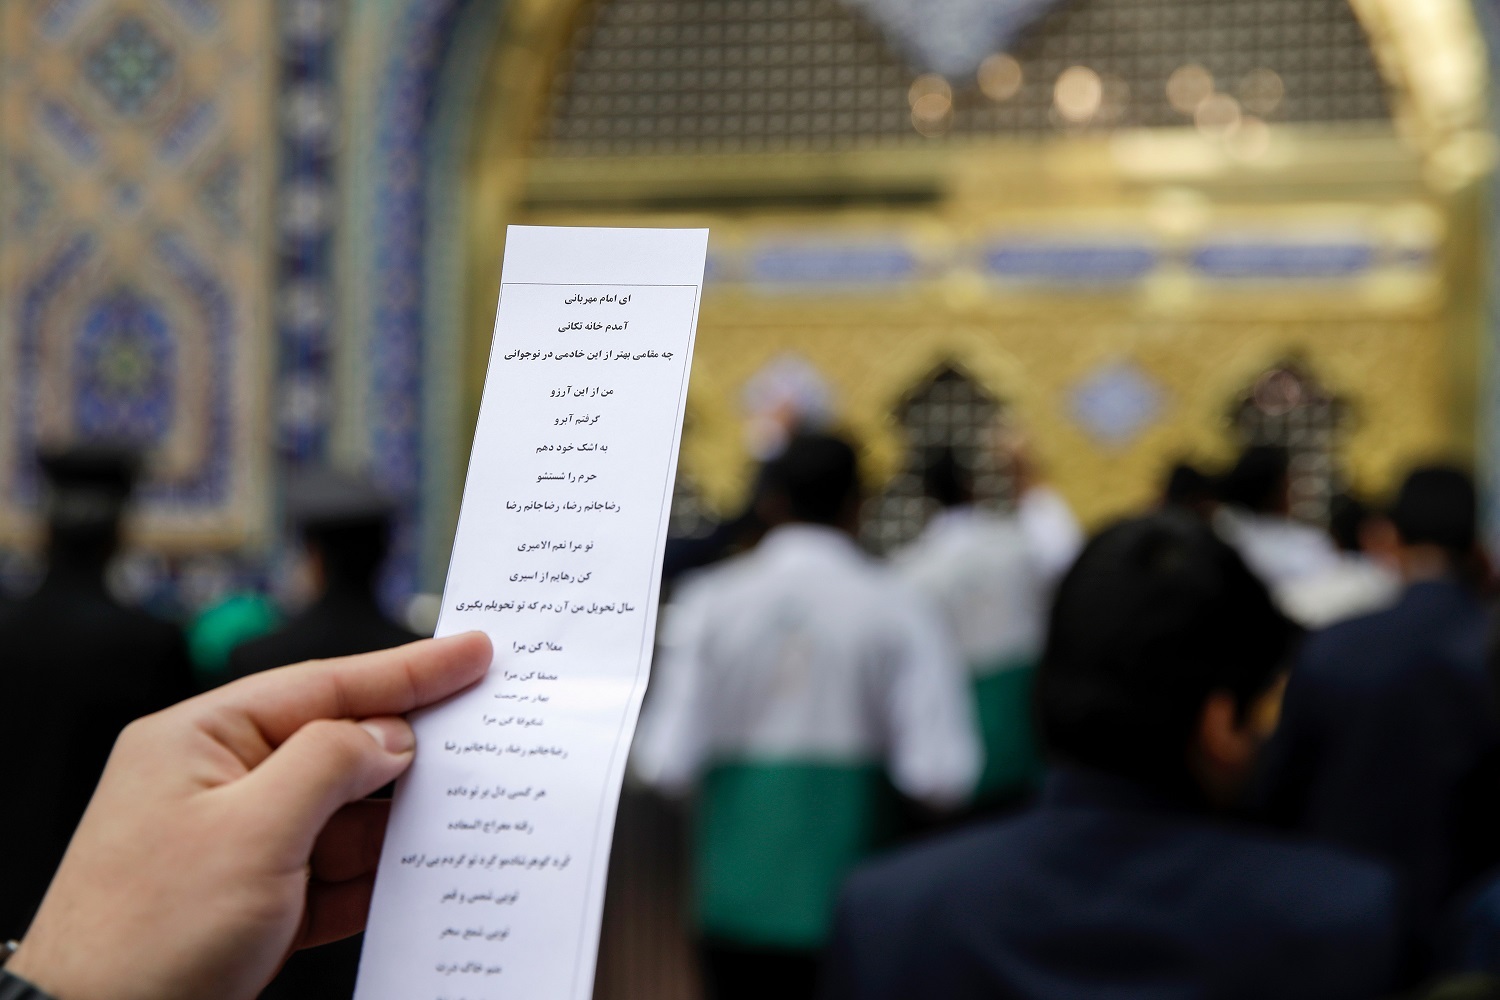 ای امام مهربانی
آمدم خانه تکانی
چه مقامی بهتر از این خادمی در نوجوانی
من از این آرزو
گرفتم آبرو
به اشک خود دهم
حرم را شستشو
رضاجانم رضا، رضاجانم رضا
تو مرا نعم الامیری
کن رهایم از اسیری
سال تحویل من آن دم که تو تحویلم بگیری
معلا کن مرا
مصفا کن مرا
بهار مرحمت
شکوفا کن مرا
رضاجانم رضا، رضاجانم رضا
هر کسی دل بر تو داده
رفته معراج السعاده
گرد گوهرشادمو گرد تو گردم بی اراده
تویی شمس و قمر
تویی شمع سحر
منم خاک درت